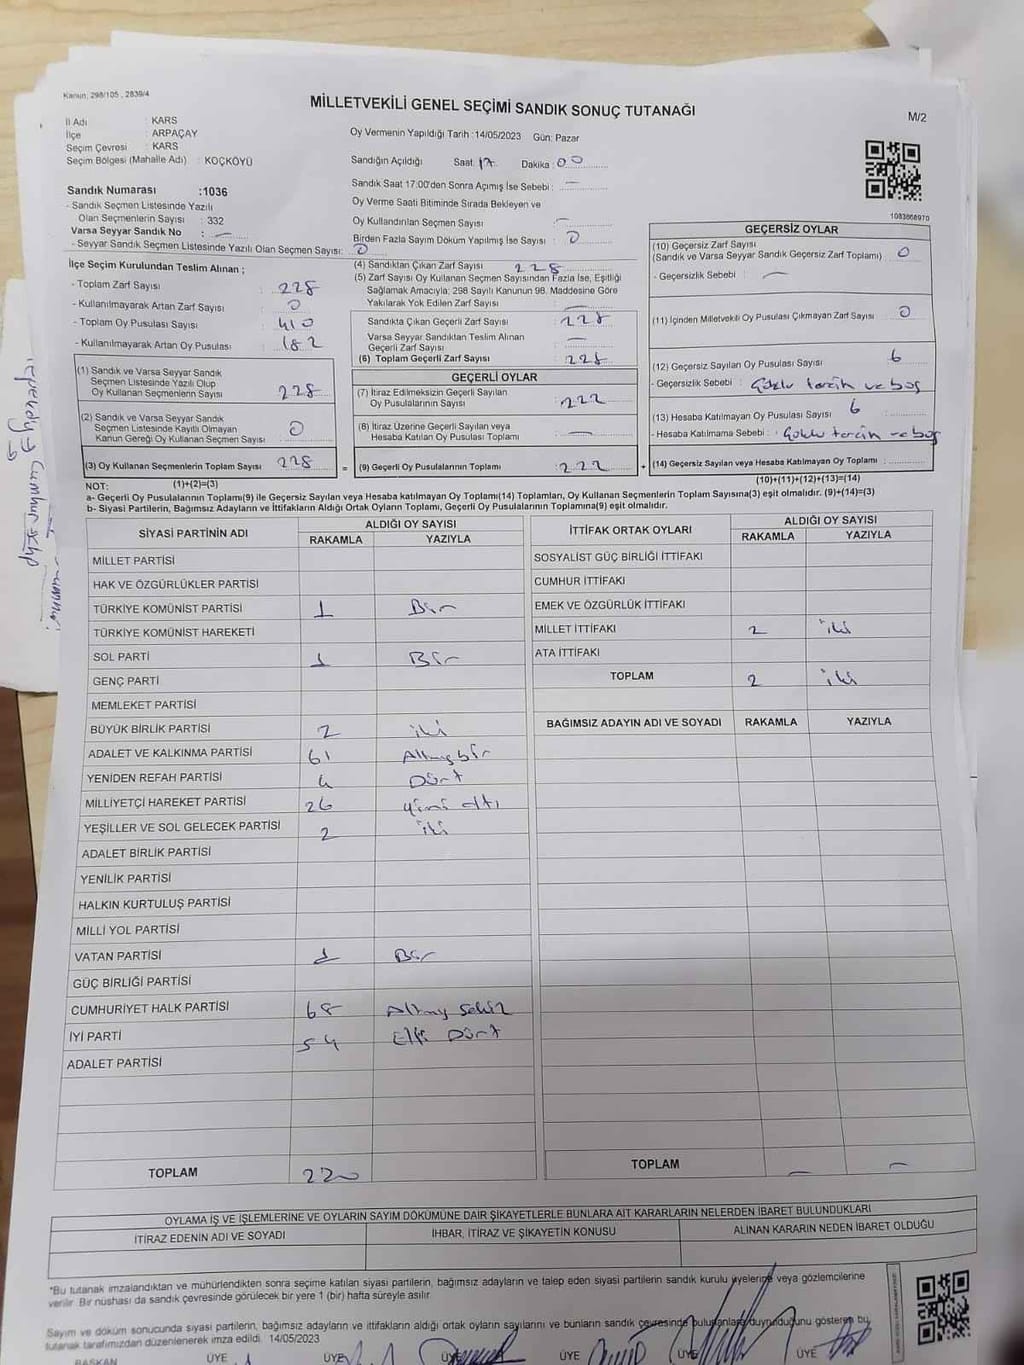 Kanun; 298/105 , 2839/4
MİLLETVEKİLİ GENEL SEÇİMİ SANDIK SONUÇ TUTANAĞI
M/2
İl Adı : KARS
İlçe : ARPAÇAY
Seçim Çevresi : KARS
Seçim Bölgesi (Mahalle Adı) : KOÇKÖYÜ
Sandık Numarası :1036
- Sandık Seçmen Listesinde Yazılı
Olan Seçmenlerin Sayısı : 332
Varsa Seyyar Sandık No : —
- Seyyar Sandık Seçmen Listesinde Yazılı Olan Seçmen Sayısı: 0
Oy Vermenin Yapıldığı Tarih :14/05/2023 Gün: Pazar
Sandığın Açıldığı Saat: 17 Dakika : 00
Sandık Saat 17:00'den Sonra Açımış İse Sebebi : —
Oy Verme Saati Bitiminde Sırada Bekleyen ve
Oy Kullandırılan Seçmen Sayısı : —
Birden Fazla Sayım Döküm Yapılmış İse Sayısı : 0
1083868970
İlçe Seçim Kurulundan Teslim Alınan ;
- Toplam Zarf Sayısı : 228
- Kullanılmayarak Artan Zarf Sayısı : 0
- Toplam Oy Pusulası Sayısı : 410
- Kullanılmayarak Artan Oy Pusulası : 182
(1) Sandık ve Varsa Seyyar Sandık
Seçmen Listesinde Yazılı Olup
Oy Kullanan Seçmenlerin Sayısı : 228
(2) Sandık ve Varsa Seyyar Sandık
Seçmen Listesinde Kayıtlı Olmayan
Kanun Gereği Oy Kullanan Seçmen Sayısı : 0
(3) Oy Kullanan Seçmenlerin Toplam Sayısı : 228
(4) Sandıktan Çıkan Zarf Sayısı : 228
(5) Zarf Sayısı Oy Kullanan Seçmen Sayısından Fazla İse, Eşitliği
Sağlamak Amacıyla; 298 Sayılı Kanunun 98. Maddesine Göre
Yakılarak Yok Edilen Zarf Sayısı : —
Sandıkta Çıkan Geçerli Zarf Sayısı : 228
Varsa Seyyar Sandıktan Teslim Alınan
Geçerli Zarf Sayısı : —
(6) Toplam Geçerli Zarf Sayısı : 228
GEÇERLİ OYLAR
(7) İtiraz Edilmeksizin Geçerli Sayılan
Oy Pusulalarının Sayısı : 222
(8) İtiraz Üzerine Geçerli Sayılan veya
Hesaba Katılan Oy Pusulası Toplamı : —
= (9) Geçerli Oy Pusulalarının Toplamı : 222
GEÇERSİZ OYLAR
(10) Geçersiz Zarf Sayısı
(Sandık ve Varsa Seyyar Sandık Geçersiz Zarf Toplamı) : 0
- Geçersizlik Sebebi : —
(11) İçinden Milletvekili Oy Pusulası Çıkmayan Zarf Sayısı : 0
(12) Geçersiz Sayılan Oy Pusulası Sayısı : 6
- Geçersizlik Sebebi : Çoklu tercih ve boş
(13) Hesaba Katılmayan Oy Pusulası Sayısı : 6
- Hesaba Katılmama Sebebi : Çoklu tercih ve boş
+ (14) Geçersiz Sayılan veya Hesaba Katılmayan Oy Toplamı :
NOT: (1)+(2)=(3)
(10)+(11)+(12)+(13)=(14)
a- Geçerli Oy Pusulalarının Toplamı(9) ile Geçersiz Sayılan veya Hesaba katılmayan Oy Toplamı(14) Toplamları, Oy Kullanan Seçmenlerin Toplam Sayısına(3) eşit olmalıdır. (9)+(14)=(3)
b- Siyasi Partilerin, Bağımsız Adayların ve İttifakların Aldığı Ortak Oyların Toplamı, Geçerli Oy Pusulalarının Toplamına(9) eşit olmalıdır.
SİYASİ PARTİNİN ADI ALDIĞI OY SAYISI
RAKAMLA YAZIYLA
MİLLET PARTİSİ
HAK VE ÖZGÜRLÜKLER PARTİSİ
TÜRKİYE KOMÜNİST PARTİSİ 1 Bir
TÜRKİYE KOMÜNİST HAREKETİ
SOL PARTİ 1 Bir
GENÇ PARTİ
MEMLEKET PARTİSİ
BÜYÜK BİRLİK PARTİSİ 2 iki
ADALET VE KALKINMA PARTİSİ 61 Altmış bir
YENİDEN REFAH PARTİSİ 4 Dört
MİLLİYETÇİ HAREKET PARTİSİ 26 yirmi altı
YEŞİLLER VE SOL GELECEK PARTİSİ 2 iki
ADALET BİRLİK PARTİSİ
YENİLİK PARTİSİ
HALKIN KURTULUŞ PARTİSİ
MİLLİ YOL PARTİSİ
VATAN PARTİSİ 1 Bir
GÜÇ BİRLİĞİ PARTİSİ
CUMHURİYET HALK PARTİSİ 68 Altmış sekiz
İYİ PARTİ 54 Elli Dört
ADALET PARTİSİ
TOPLAM 220
İTTİFAK ORTAK OYLARI ALDIĞI OY SAYISI
RAKAMLA YAZIYLA
SOSYALİST GÜÇ BİRLİĞİ İTTİFAKI
CUMHUR İTTİFAKI
EMEK VE ÖZGÜRLÜK İTTİFAKI
MİLLET İTTİFAKI 2 iki
ATA İTTİFAKI
TOPLAM 2 iki
BAĞIMSIZ ADAYIN ADI VE SOYADI RAKAMLA YAZIYLA
TOPLAM — —
OYLAMA İŞ VE İŞLEMLERİNE VE OYLARIN SAYIM DÖKÜMÜNE DAİR ŞİKAYETLERLE BUNLARA AİT KARARLARIN NELERDEN İBARET BULUNDUKLARI
İTİRAZ EDENİN ADI VE SOYADI İHBAR, İTİRAZ VE ŞİKAYETİN KONUSU ALINAN KARARIN NEDEN İBARET OLDUĞU
*Bu tutanak imzalandıktan ve mühürlendikten sonra seçime katılan siyasi partilerin, bağımsız adayların ve talep eden siyasi partilerin sandık kurulu üyelerine veya gözlemcilerine
verilir. Bir nüshası da sandık çevresinde görülecek bir yere 1 (bir) hafta süreyle asılır.
Sayım ve döküm sonucunda siyasi partilerin, bağımsız adayların ve ittifakların aldığı ortak oyların sayılarını ve bunların sandık çevresinde bulunanlara duyrulduğunu gösteren bu
tutanak tarafımızdan düzenlenerek imza edildi. 14/05/2023
BAŞKAN ÜYE ÜYE ÜYE ÜYE ÜYE ÜYE